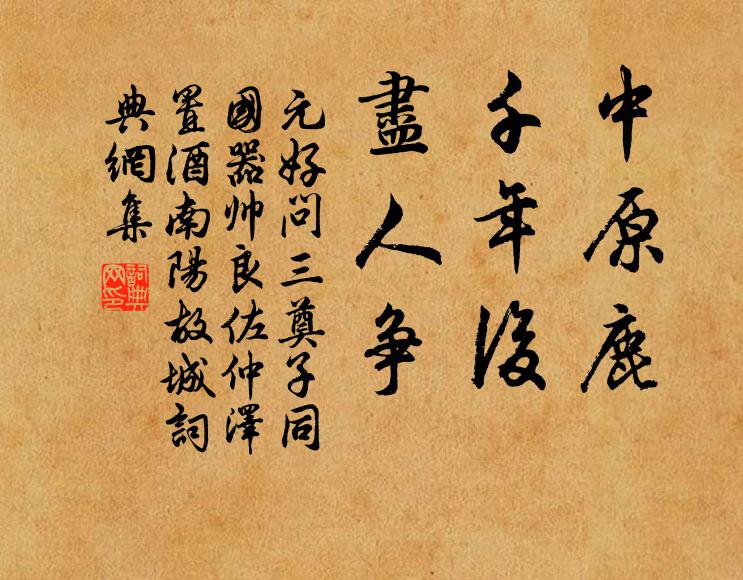 中原鹿
千年後
盡人爭
元好問三奠子同
國器帅良佐仲澤
置酒南陽故城詞
典網集
詞典網印